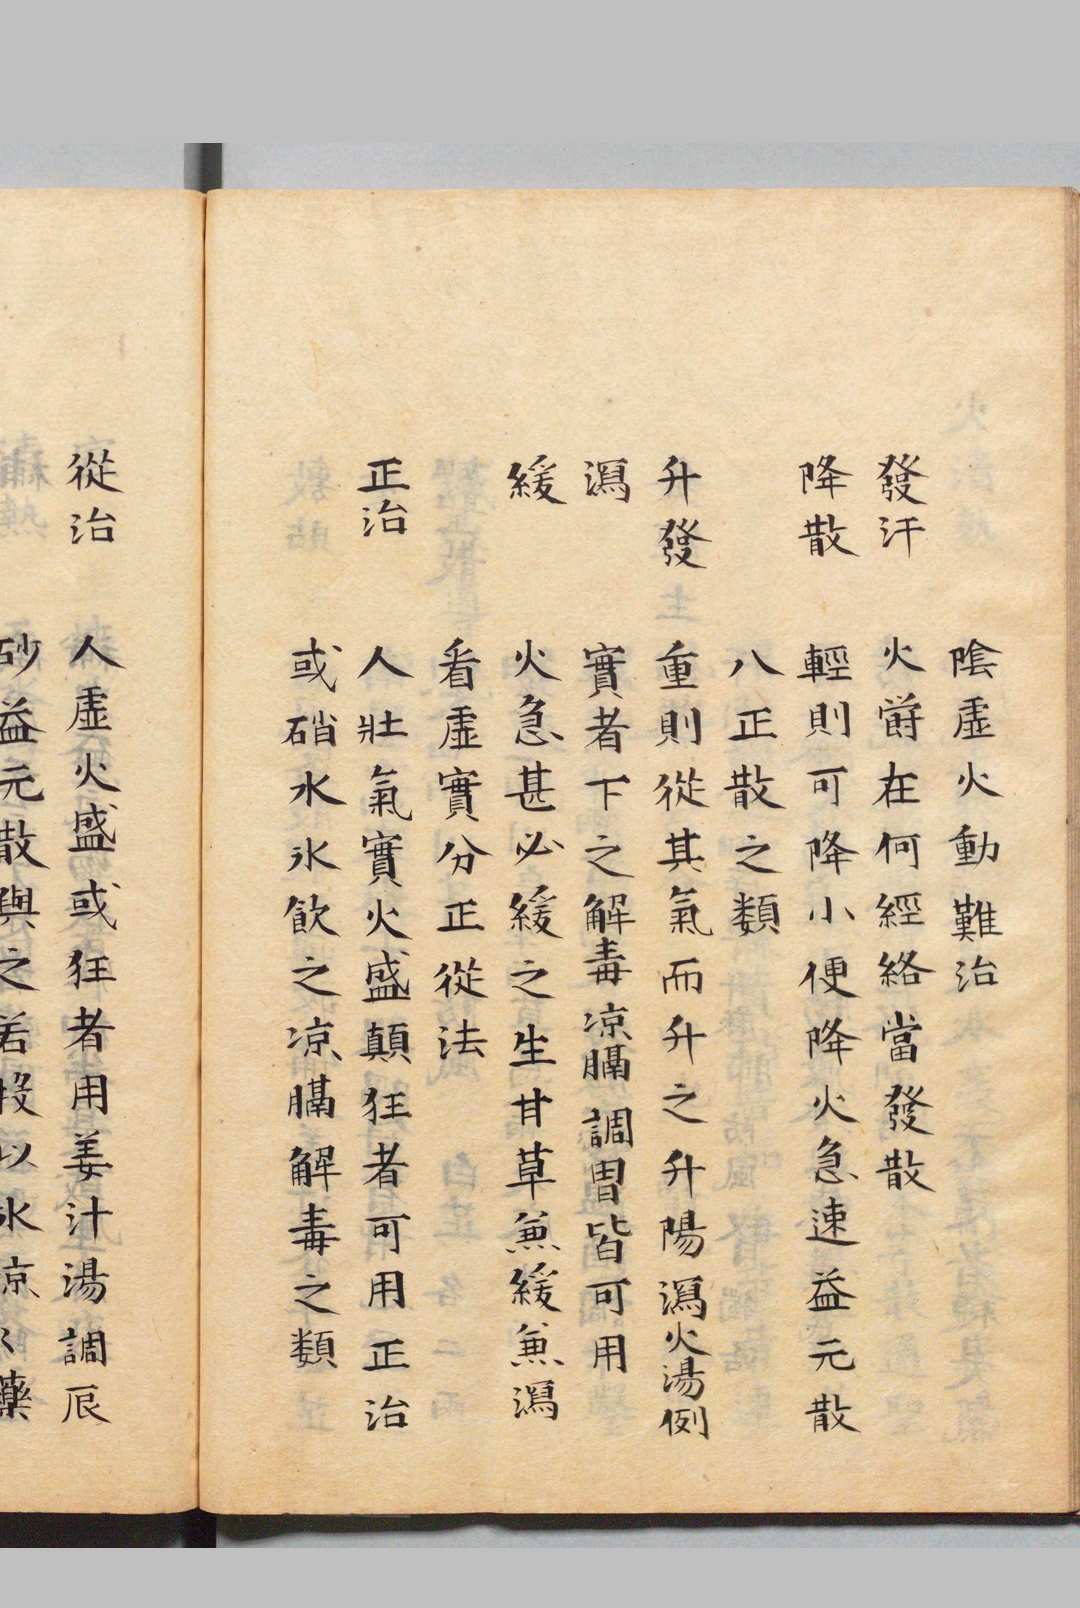 陰虛火動難治
發汗 火欝在何經絡當發散
降散 輕則可降小便降火急速益元散
八正散之類
升發 重則從其氣而升之升陽瀉火湯例
瀉 實者下之解毒凉膈調胃皆可用
緩 火急甚必緩之生甘草兼緩兼瀉
看虛實分正從法
正治 人壯氣實火盛顛狂者可用正治
或硝水氷飲之凉膈解毒之類
從治 人虛火盛或狂者用姜汁湯調辰
砂益元散與之若投以氷凉之藥